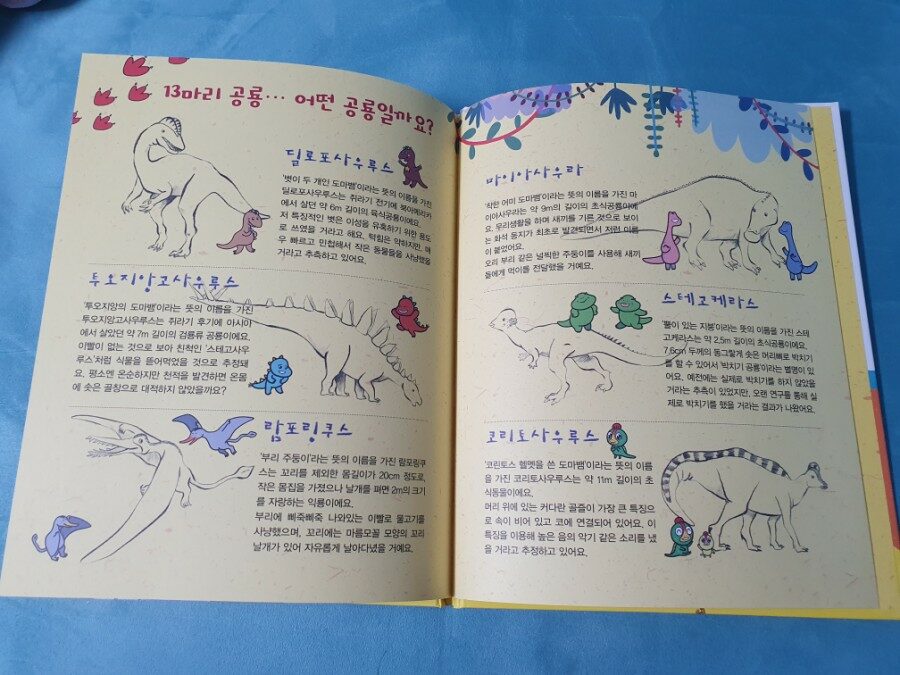 13마리 공룡… 어떤 공룡일까요?
딜로포사우루스
'볏이 두 개인 도마뱀'이라는 뜻의 이름을 가진
딜로포사우루스는 쥐라기 전기에 북아메리카
에서 살던 약 6m 길이의 육식공룡이에요.
저 특징적인 볏은 이성을 유혹하기 위한 용도
로 쓰였을 거라고 해요. 턱힘은 약하지만, 매
우 빠르고 민첩해서 작은 동물들을 사냥했을
거라고 추측하고 있어요.
투오지앙고사우루스
'투오지앙의 도마뱀'이라는 뜻의 이름을 가진
투오지앙고사우루스는 쥐라기 후기에 아시아
에서 살았던 약 7m 길이의 검룡류 공룡이에요.
이빨이 없는 것으로 보아 친척인 '스테고사우
루스'처럼 식물을 뜯어먹었을 것으로 추정돼
요. 평소엔 온순하지만 천적을 발견하면 온몸
에 솟은 골침으로 대적하지 않았을까요?
람포링쿠스
'부리 주둥이'라는 뜻의 이름을 가진 람포링쿠
스는 꼬리를 제외한 몸길이가 20cm 정도로,
작은 몸집을 가졌으나 날개를 펴면 2m의 크기
를 자랑하는 익룡이에요.
부리에 삐죽삐죽 나와있는 이빨로 물고기를
사냥했으며, 꼬리에는 마름모꼴 모양의 꼬리
날개가 있어 자유롭게 날아다녔을 거예요.
마이아사우라
'착한 어미 도마뱀'이라는 뜻의 이름을 가진 마
이아사우라는 약 9m의 길이의 초식공룡이에
요. 무리생활을 하며 새끼를 기른 것으로 보이
는 화석 둥지가 최초로 발견되면서 저런 이름
이 붙었어요.
오리 부리 같은 넓적한 주둥이를 사용해 새끼
들에게 먹이를 전달했을 거예요.
스테고케라스
'뿔이 있는 지붕'이라는 뜻의 이름을 가진 스테
고케라스는 약 2.5m 길이의 초식공룡이에요.
7.6cm 두께의 동그랗게 솟은 머리뼈로 박치기
를 할 수 있어서 '박치기 공룡'이라는 별명이 있
어요. 예전에는 실제로 박치기를 하지 않았을
거라는 추측이 있었지만, 오랜 연구를 통해 실
제로 박치기를 했을 거라는 결과가 나왔어요.
코리토사우루스
'코린토스 헬멧을 쓴 도마뱀'이라는 뜻의 이름
을 가진 코리토사우루스는 약 11m 길이의 초
식동물이에요.
머리 위에 있는 커다란 골즐이 가장 큰 특징으
로 속이 비어 있고 코에 연결되어 있어요. 이
특징을 이용해 높은 음의 악기 같은 소리를 냈
을 거라고 추정하고 있어요.